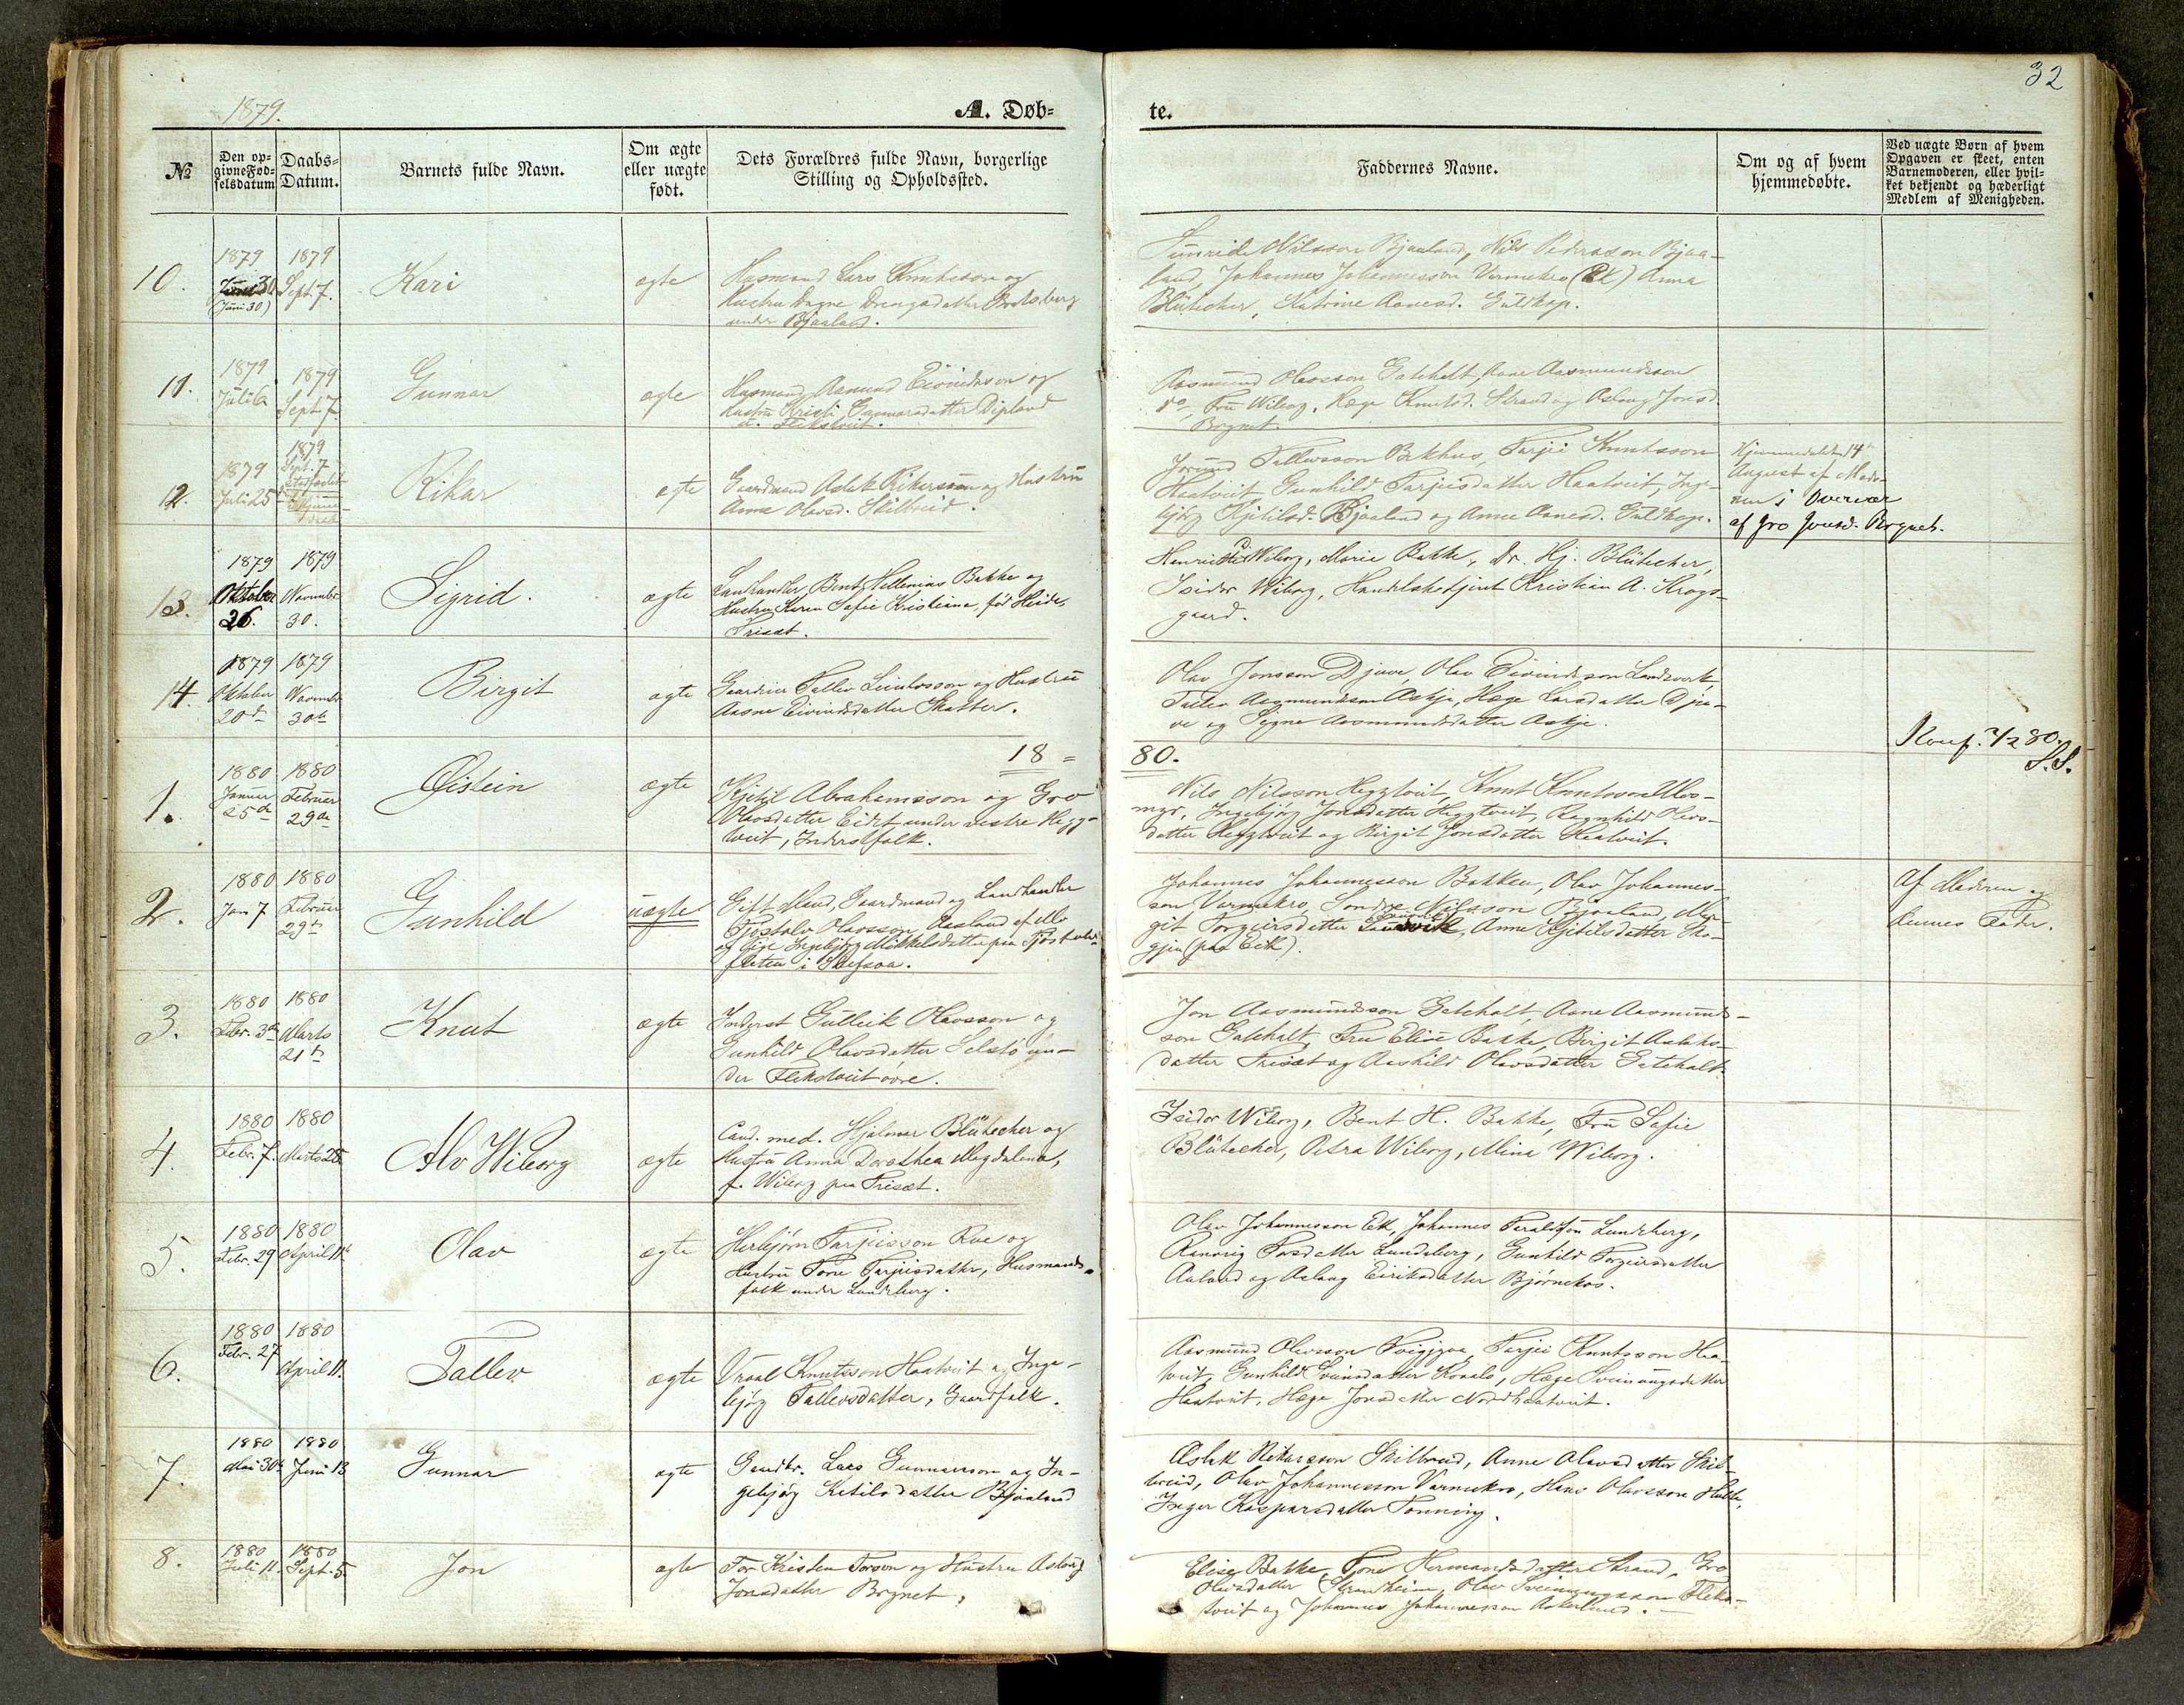 32
1879.
A. Døb=
te.
№
Den op=
givne Fød=
selsdatum
Daabs=
Datum.
Barnets fulde Navn.
Om ægte
eller uægte
født.
Dets Forældres fulde Navn, borgerlige
Stilling og Opholdssted.
Faddernes Navne.
Om og af hvem
hjemmedøbte.
Ved uægte Børn af hvem
Opgaven er skeet, enten
Barnemoderen, eller hvil=
ket bekjendt og hæderligt
Medlem af Menigheden.
10.
1879
(Juni 30)
1879
Sept. 7.
Kari
ægte
Husmand Lars Knutsson og
Hustru Dagne Drengsdatter
under Bjaaland.
Nilsson Bjaaland, Nils Pedersson Bjaa-
land, Johannes Johannesson Varmekro (Ek) Anna
Blütecher, Katrine Aanesd. Guldkop.
11.
1879
Juli 6
1879
Sept. 7
Gunnar
ægte
Husmand Aamund Eivindsson og
Hustru Kristi Gunnarsdatter Dipland
u. Flekstveit.
Aasmund Olavsson Gateholt, Aane Aasmundsson
do, Fru Wiborg, Hæge Knutsd. Strand og Aslaug Jonsd.
Brgnet.
12.
1879
Juli 25
1879
Sept. 7
stadfæstet
Rikar
ægte
Gaardmand Aslak Rikarsson og Hustru
Anne Olavsd. Skilbreid.
Jorund Tallevsson Bakhus, Tarjei Knutsson
Haatveit, Gunhild Tarjeisdatter Haatveit, Inge-
bjørg Kjetilsd. Bjaaland og Anne Aanesd. Guldkop.
Hjemmedøbt 14de
August af Mode-
ren i Overvær
af Gro Jonsd. Brgnet.
13.
1879
Oktober
26.
1879
Novmbr
30.
Sigrid.
ægte
Landhandler Bent Hellenius Bakke og
Hustru Karen Sofie Kristiane, fød Heide,
Triset.
Wiborg, Marie Bakke, Dr. Hj. Blütecher,
Isidor Wiborg, Handelsbetjent Kristian A. Krogs-
gaard.
14.
1879
Oktober
20de
1879
Novmbr
30te
Birgit
ægte
Gaardeier Tallev Leivlosson og Hustru
Aasne Eivindsdatter Skatter.
Olav Jonsson Djuve, Olav Eivindsson Landsverk,
Tallev Aasmundsson Askje, Hæge Larsdatter Dju-
ve og Signe Aasmundsdatter Askje.
18 =
80.
Konf. 7/2 80.
S.S.
1.
1880
Januar
25de
1880
Februar
29de
Øistein
ægte
Kjetil Abrahamsson og Gro
Olavsdatter Eidet under vestre Hegg-
tveit, Inderstfolk.
Nils Nilsson Heggtveit, Knut Knutsson Uvs-
myr, Ingebjørg Jonsdatter Heggtveit, Ragnhild Olavs-
datter Heggtveit og Birgit Jonsdatter Haatveit.
2.
1880
Jan 7
1880
Februar
29de
Gunhild
uægte
Gift Mand, Gaardmand og Landhandler
Tjostolv Olavsson Aasland af Mo
og Pige Ingebjørg Mikkelsdatter paa Tjostols-
fløten i Skafsaa.
Johannes Johannesson Bakken, Olav Johannes-
son Varmekro, Sondre Nilsson Bjaaland, Mar-
git Torgeirsdatter Anne Kjetilsdatter Sko-
gjen (paa Eik).
Af Moderen og
hennes Fader.
3.
1880
Febr. 3de
1880
Marts
21de
Knut
ægte
Inderst Gulleik Olavsson og
Gunhild Olavsdatter Selstø un-
der Flekstveit övre.
Jon Aasmundsson Gateholt, Aane Aasmunds-
son Gateholt, Fru Elise Bakke, Birgit Aslaks-
datter Triset og Aashild Olavsdatter Gateholt.
4.
1880
Febr. 7.
1880
Marts 28
Alv Wiborg
ægte
Cand. med. Hjalmar Blütecher og
Hustru Anna Dorothea Magdalena,
f. Wiborg paa Triset.
Isidor Wiborg, Bent H. Bakke, Fru Sofie
Blütecher, Petra Wiborg, Mina Wiborg.
5.
1880
Febr. 29
1880
April 11te
Olav
ægte
Herbjørn Tarjeisson Rue og
Hustru Tone Tarjeisdatter, Husmands-
folk under Lundeberg.
Olav Johannesson Ek, Johannes Lundeberg,
Ranveig Lundeberg, Gunhild Torgeirsdatter
Aaland og Aslaug Eiriksdatter Bjørnekos.
6.
1880
Febr. 27
1880
April 11.
Tallev
ægte
Vraal Knutsson Haatveit og Inge-
bjørg Tallevsdatter, Gaardfolk.
Aasmund Olavsson Tveigjva, Tarjei Knutsson Haa-
tveit, Gunhild Sveinsdatter Hæge Sveinungsdatter
Haatveit, Hæge Jonsdatter Nordhaatveit.
7.
1880
Mai 30te
1880
Juni 13
Gunnar
ægte
Gaardbr. Lars Gunnarsson og In-
gebjørg Ketilsdatter Bjaaland
Aslak Rikarsson Skilbreid, Anne Olavsdatter Skil-
breid, Olav Johannesson Varmekro, Hans Olavsson
Inger Kaspersdatter Tonning.
8.
1880
Juli 11.
1880
Sept. 5
Jon
ægte
Tor Kristen Torson og Hustru Aslaug
Jonsdatter Brgnet.
Elise Bakke, Tone Hermandsdatter Strand, Gro
Olavsdatter Strandheim, Olav Sveinungsson Fleks-
tveit og Johannes Johannesson Askelund.